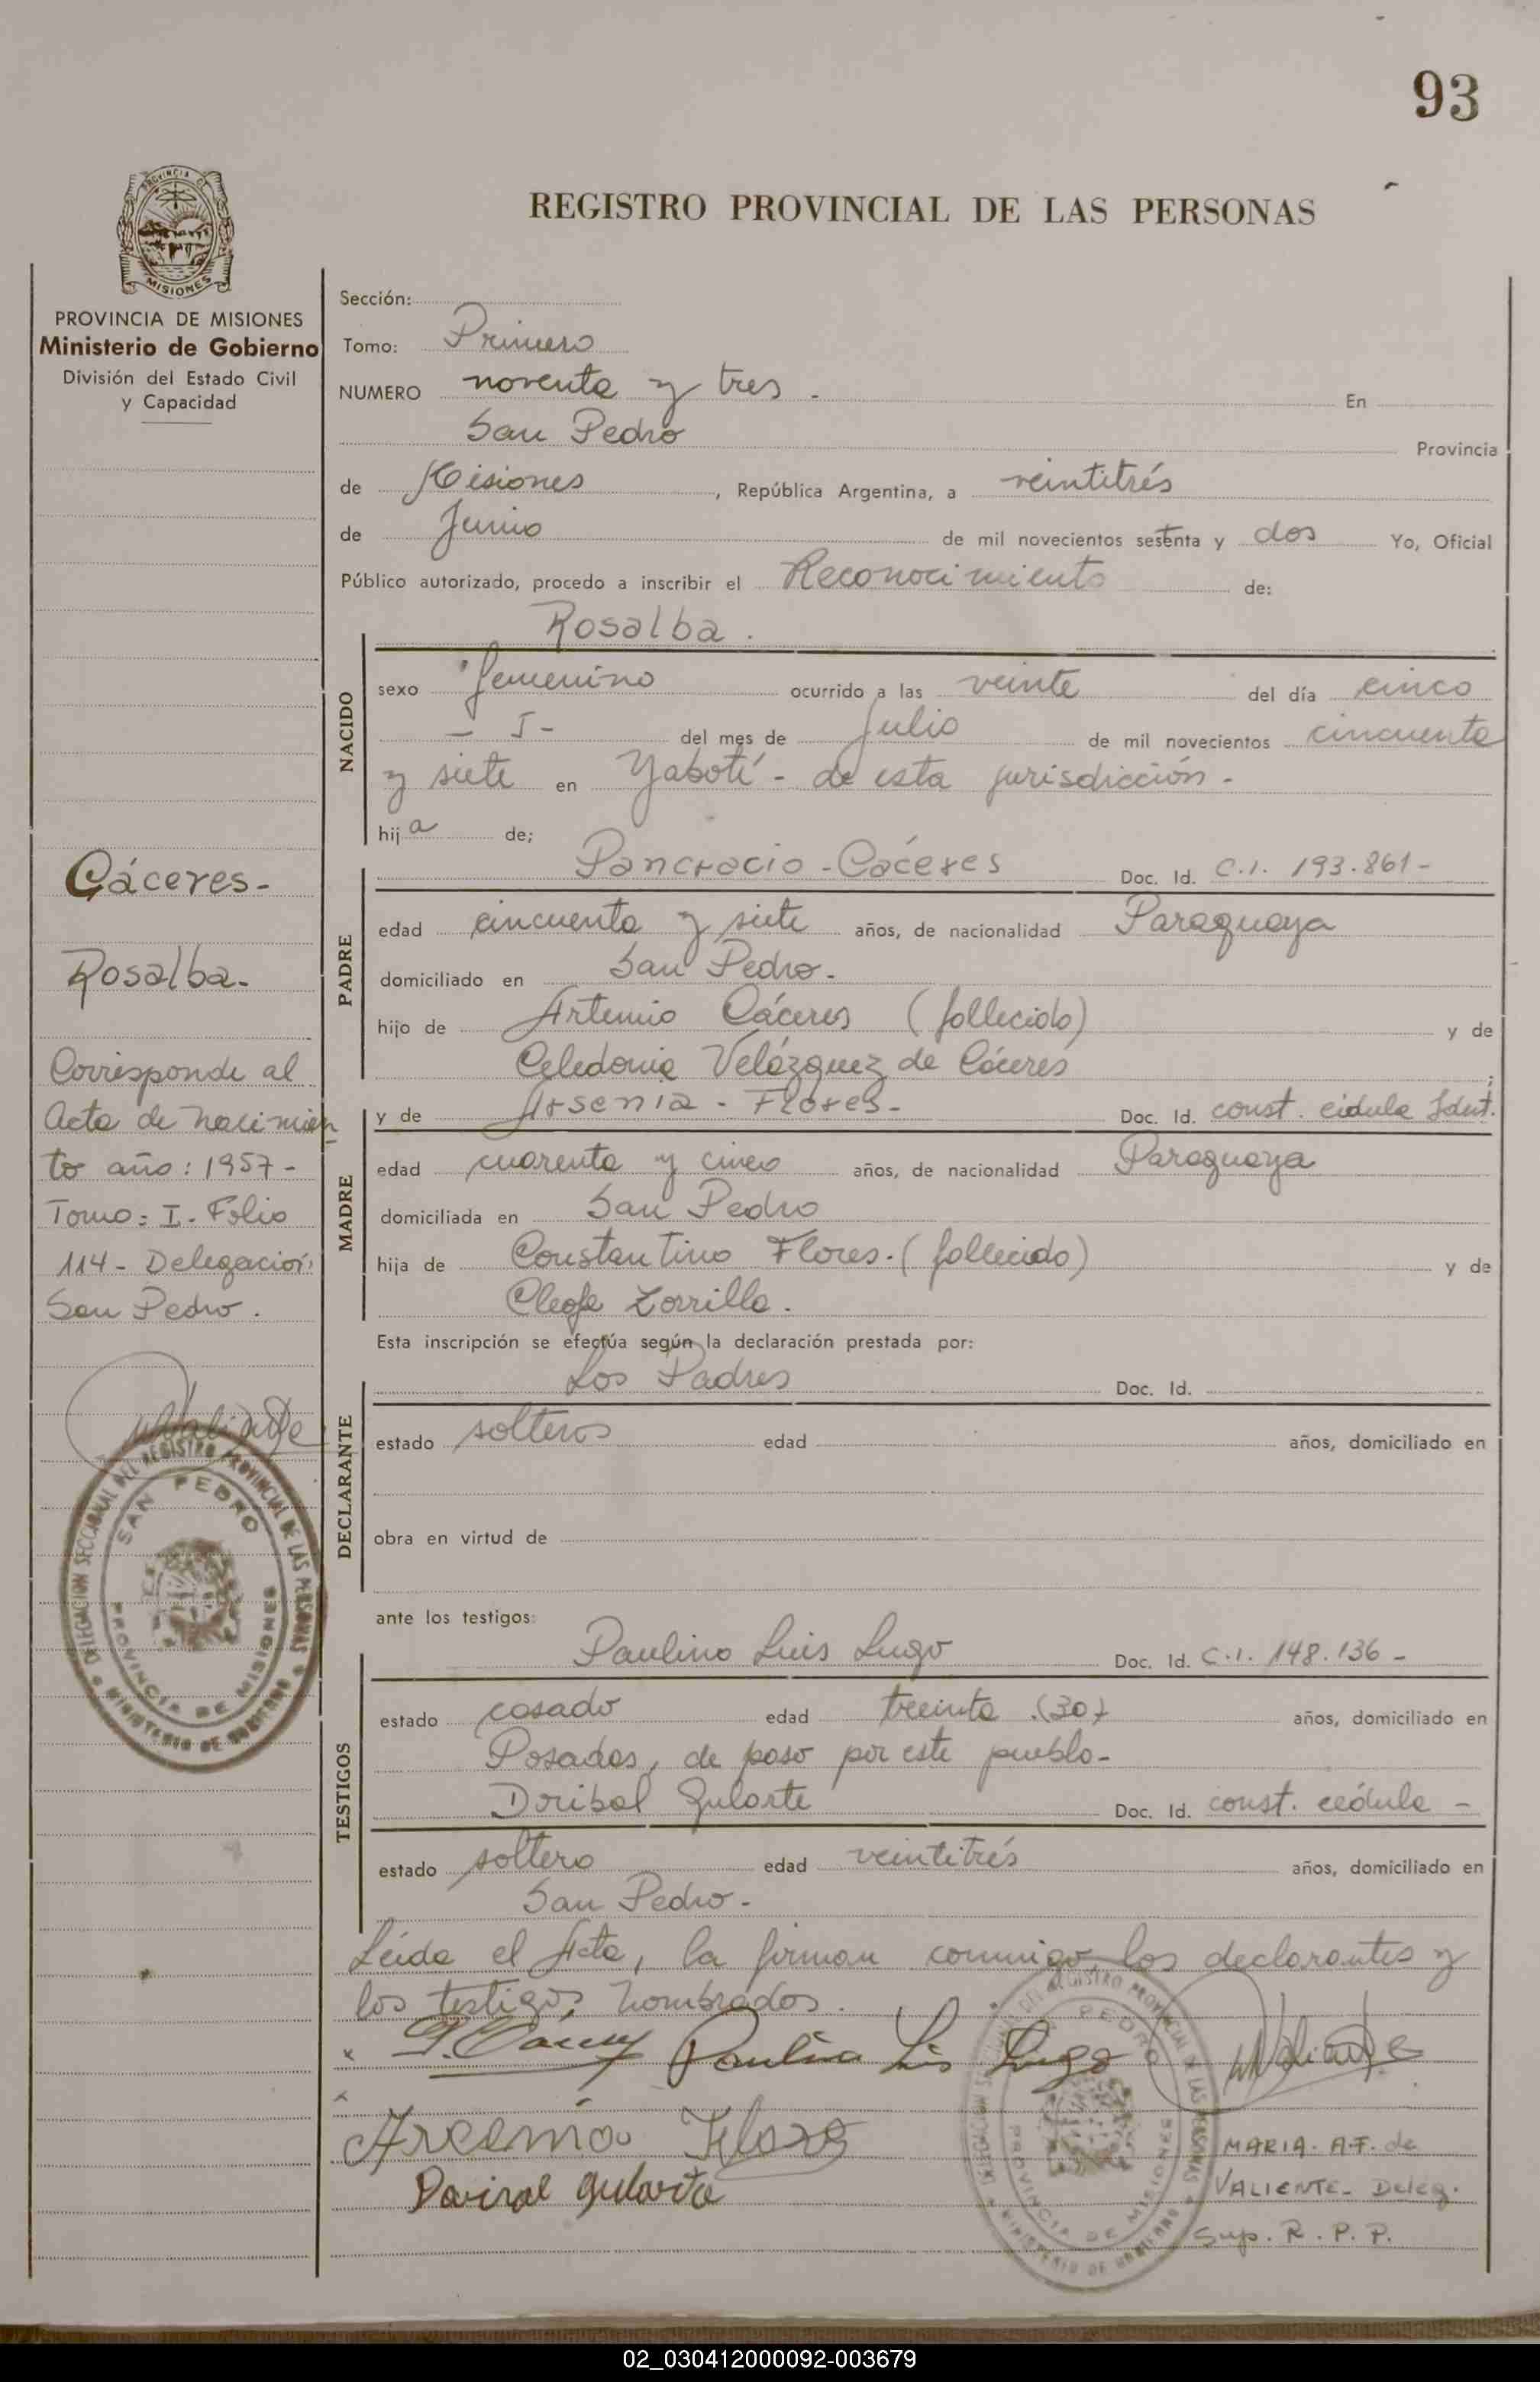 93
REGISTRO PROVINCIAL DE LAS PERSONAS
PROVINCIA DE MISIONES
PROVINCIA DE MISIONES
Ministerio de Gobierno
División del Estado Civil
y Capacidad
Cáceres-
Rosalba-
Corresponde al
Acta de Nacimien
to año: 1957-
Tomo: I. Folio
114- Delegación
San Pedro.
DELEGACION SECCIONAL DEL REGISTRO PROVINCIAL DE LAS PERSONAS
SAN PEDRO
PROVINCIA DE MISIONES
MINISTERIO DE GOBIERNO
Sección:
Tomo: Primero
NUMERO noventa y tres - En
San Pedro Provincia
de Misiones, República Argentina, a veintitrés
de Junio de mil novecientos sesenta y dos Yo, Oficial
Público autorizado, procedo a inscribir el Reconocimiento de:
Rosalba.
NACIDO
sexo femenino ocurrido a las veinte del día cinco
- 5 - del mes de Julio de mil novecientos cincuenta
y siete en Yabotí- de esta jurisdicción-
hija de;
PADRE
Pancracio-Cáceres Doc. Id. C.I. 193.861-
edad cincuenta y siete años, de nacionalidad Paraguaya
domiciliado en San Pedro-
hijo de Artemio Cáceres (fallecido) y de
Celedonia Velázquez de Cáceres
MADRE
y de Arsenia-Flores- Doc. Id. const. cédula Ident.
edad cuarenta y cinco años, de nacionalidad Paraguaya
domiciliada en San Pedro
hija de Constantino Flores.(fallecido) y de
Cleofe Zorrilla.
Esta inscripción se efectúa según la declaración prestada por:
DECLARANTE
Los Padres Doc. Id.
estado solteros edad años, domiciliado en
obra en virtud de
ante los testigos:
TESTIGOS
Paulino Luis Lugo Doc. Id. C.I. 148.136-
estado casado edad treinta (30) años, domiciliado en
Posadas, de paso por este pueblo-
Doribal Gularte Doc. Id. const. cédula -
estado soltero edad veintitrés años, domiciliado en
San Pedro-
Leída el Acta, la firman conmigo, los declarantes y
los testigos nombrados.
P. Cáceres Paulino Luis Lugo
Arcemia Flores
Dorival Gularte
MARIA. A.F. de
VALIENTE- Deleg.
Sup. R. P. P.
DELEGACION SECCIONAL DEL REGISTRO PROVINCIAL DE LAS PERSONAS
SAN PEDRO
PROVINCIA DE MISIONES
MINISTERIO DE GOBIERNO
02_030412000092-003679